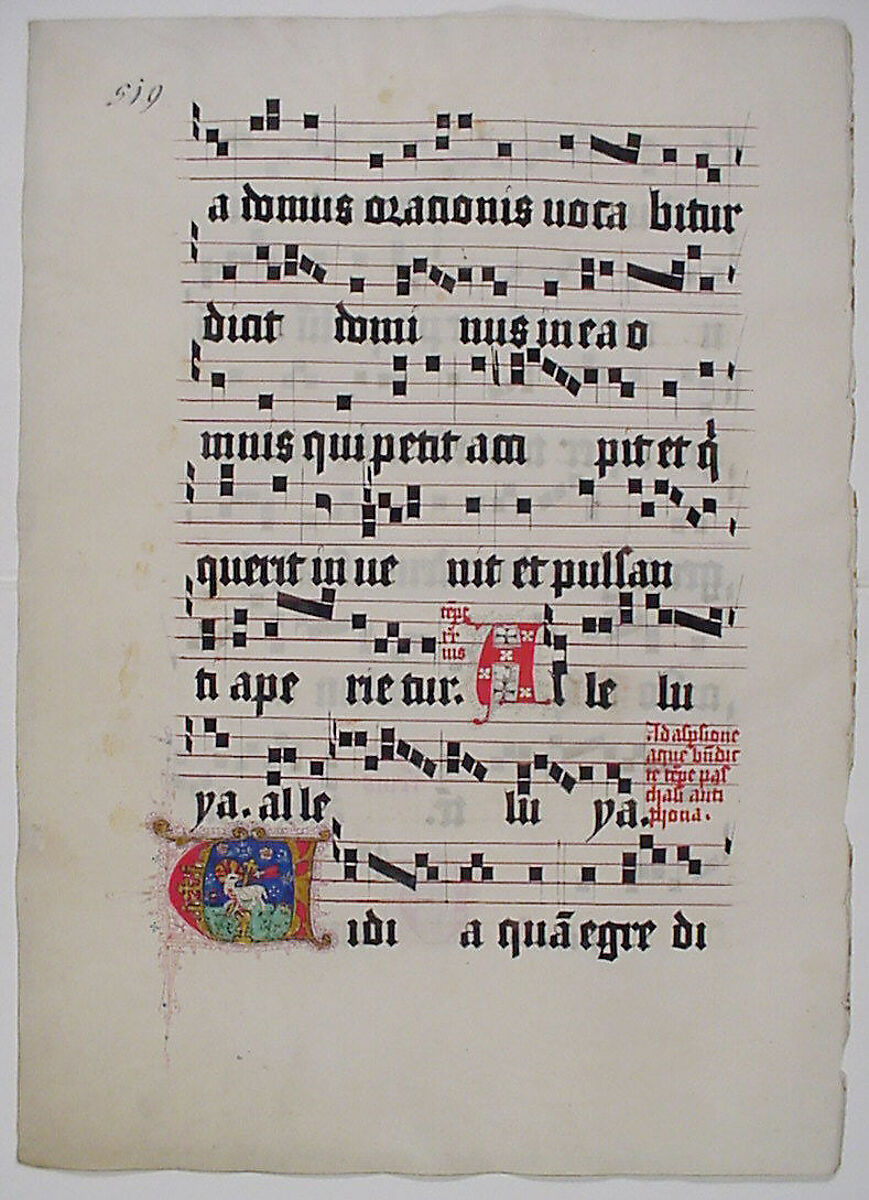 519
a domus orationis uoca bitur
dicit domi nus in ea o
mnis qui petit acci pit et q̇
querit in ue nit et pulsan
ti ape rie tur. Al le lu
tēpe
re
ius
ya. al le lu ya.
Ad aspsione
aque bn̄dic
te tēpe pas
chali anti
phona.
Uidi a quā egre di